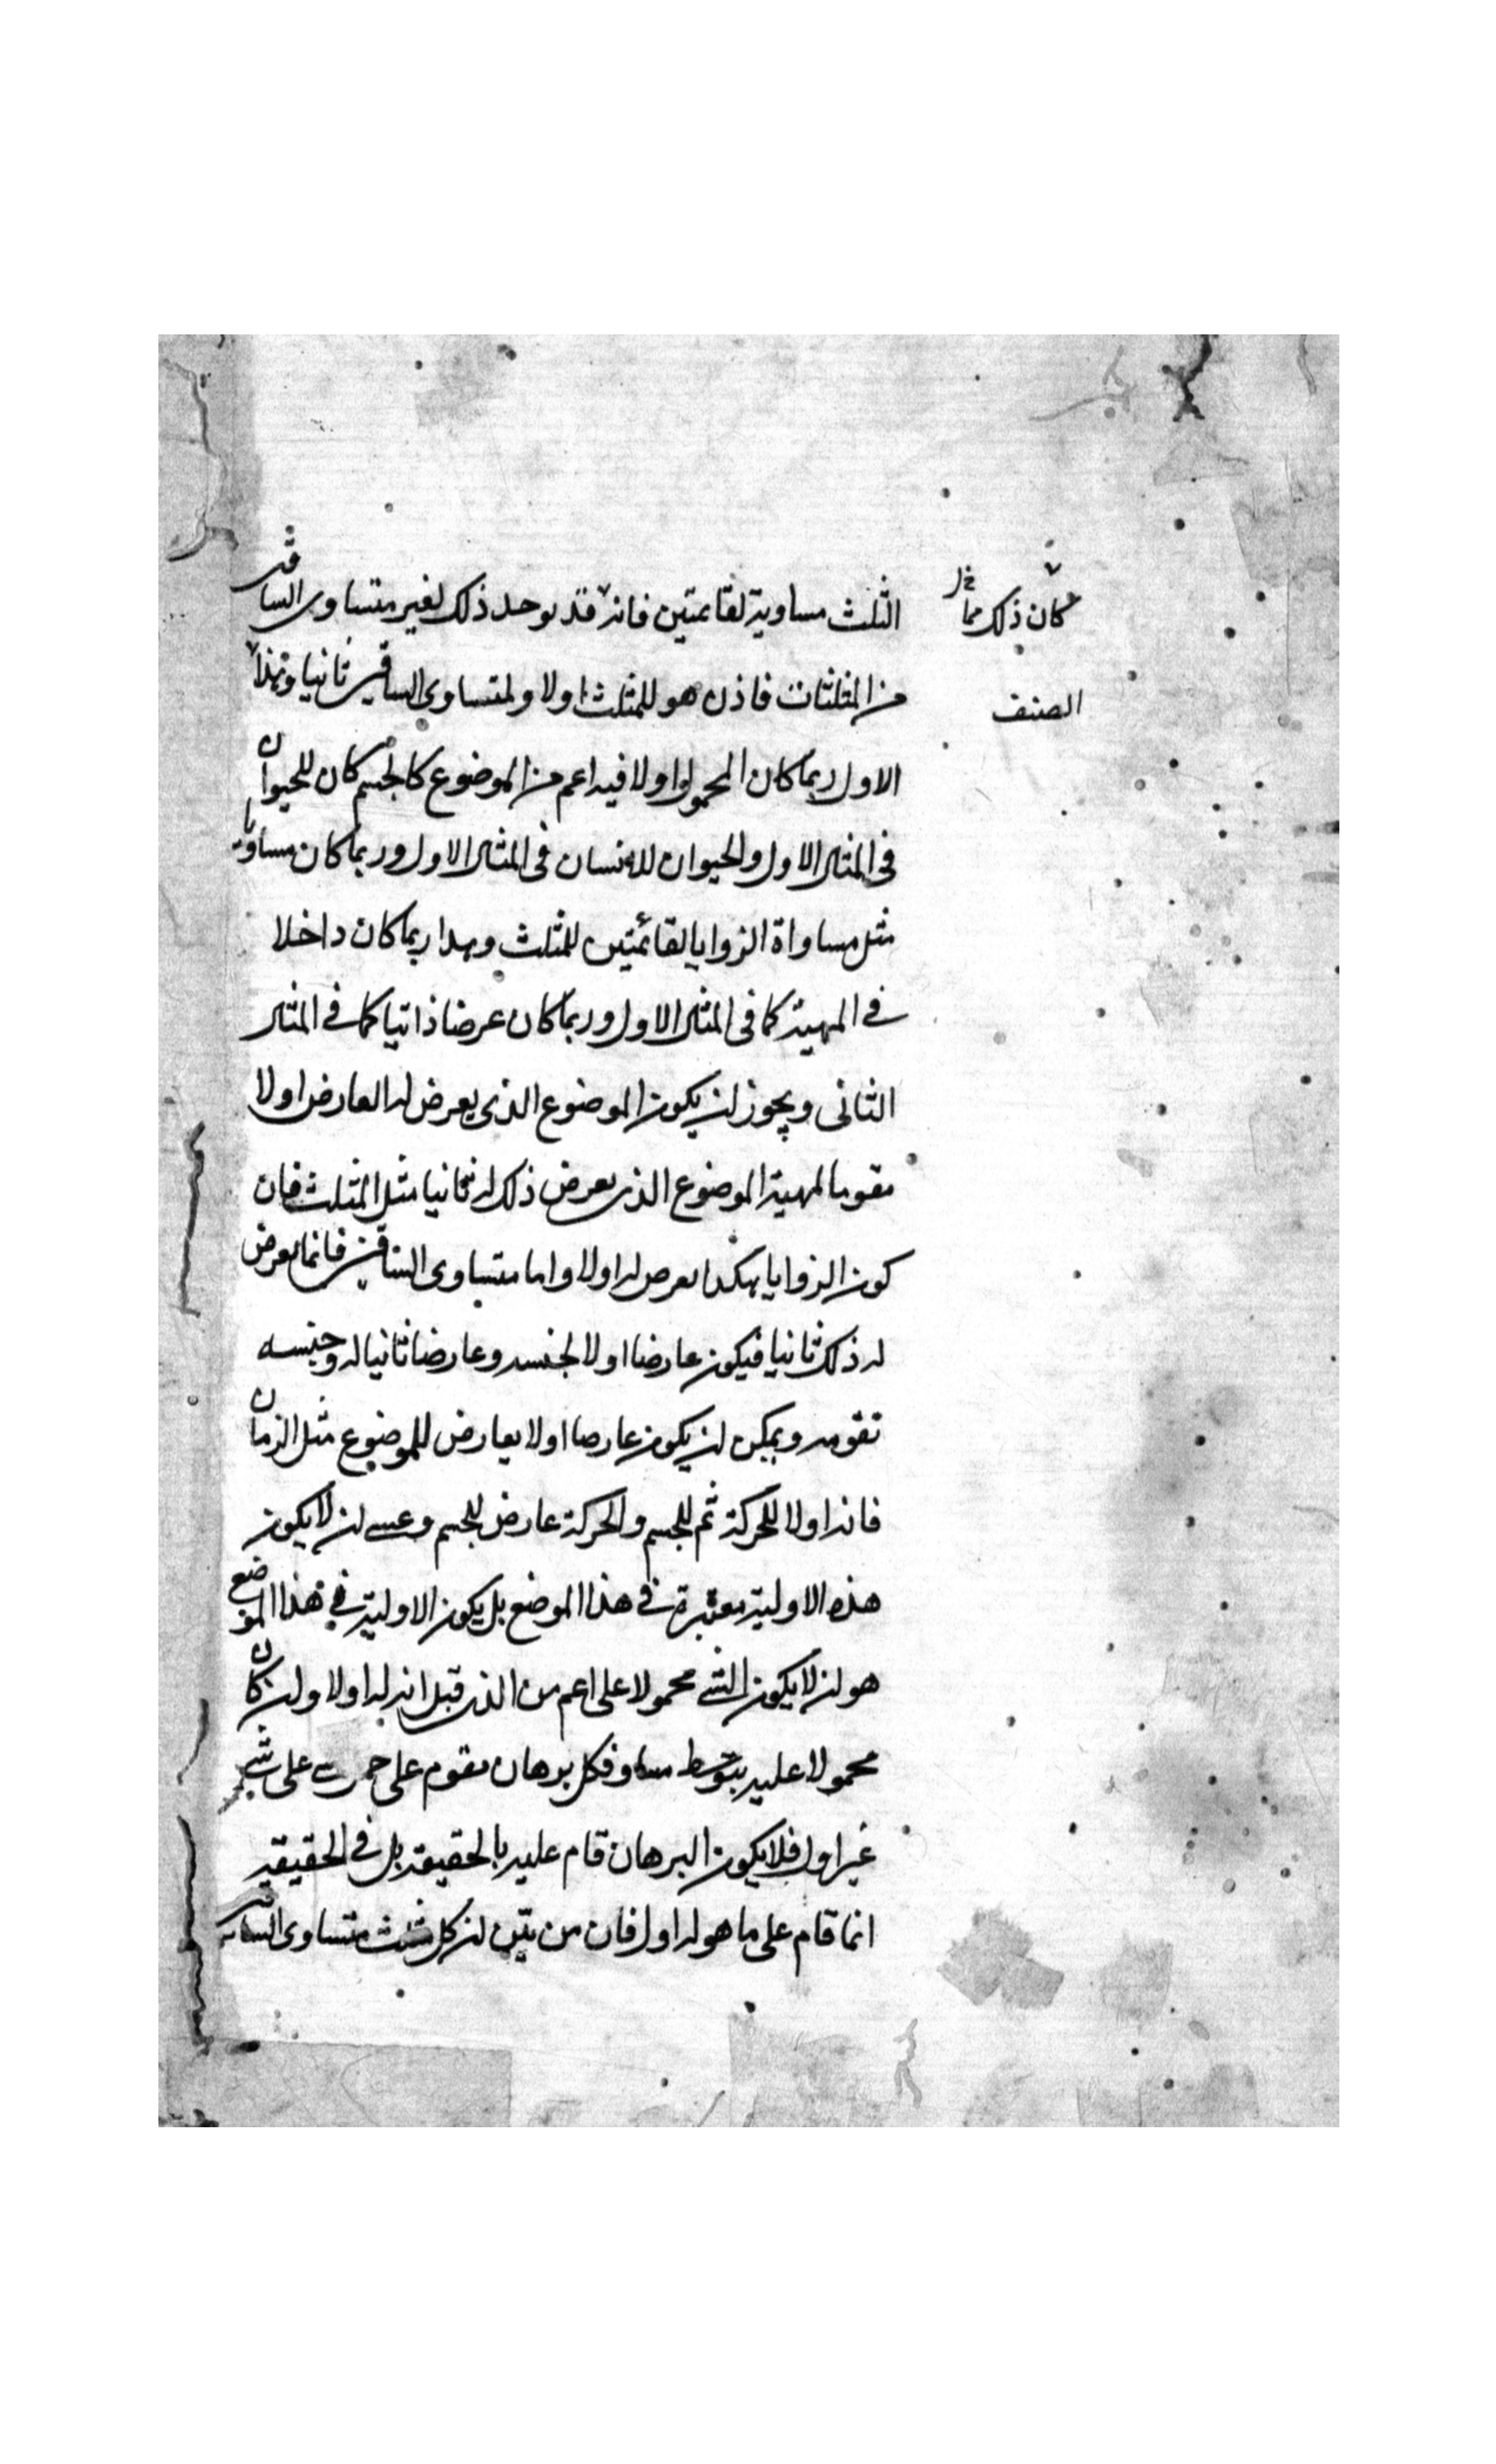 الثلث مساوية لقائمتين فانه قد يوجد ذلك لغير متساوى الساقين
كان ذلك مما
من المثلثات فاذن هو للمثلث اولا ولمتساوى الساقين ثانيا وهذا
الصنف
الاول ربما كان المحمول اولا فيه اعم من الموضوع كالجسم كان للحيوان
فى المثال الاول والحيوان للانسان فى المثال الاول وربما كان مساويا
مثل مساواة الزوايا لقائمتين للمثلث وهذا ربما كان داخلا
فى المهية كما فى المثال الاول وربما كان عرضا ذاتيا كما فى المثال
الثانى ويجوز ان يكون الموضوع الذى يعرض له العارض اولا
مقوما لمهية الموضوع الذى يعرض ذلك له ثانيا مثل المثلث فان
كون الزوايا هكذا يعرض له اولا واما متساوى الساقين فانما يعرض
له ذلك ثانيا فيكون عارضا اولا لجنسه وعارضا ثانيا له وجنسه
تقومه ويمكن ان يكون عارضا اولا بعارض للموضوع مثل الزمان
فانه اولا للحركة ثم للجسم والحركة عارض للجسم وعسى ان لا يكون
هذه الاولية معتبرة فى هذا الموضع بل يكون الاولية فى هذا الموضع
هو ان لا يكون الشى محمولا على اعم من الذى قيل انه له اولا وان كان
محمولا عليه بتوسط مساو فكل برهان يقوم على على شى
غير اول فلا يكون البرهان قام عليه بالحقيقة بل فى الحقيقة
انما قام على ما هو له اول فان من بين ان كل مثلث متساوى الساقين